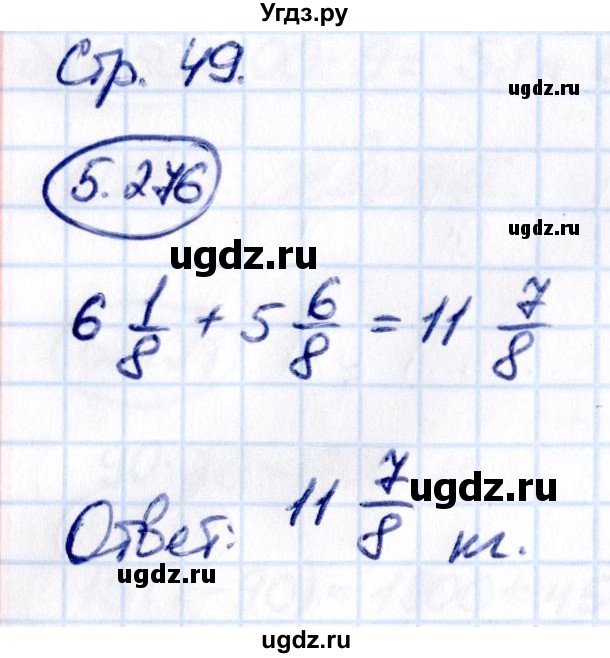 Угдз.ру
Стр. 49.
ugdz.ru
5.276
ugdz.ru
ugdz.ru
6 1/8 + 5 6/8 = 11 7/8
ugdz.ru
Ответ: 11 7/8 кг.
ugdz.ru
ugdz.ru
ugdz.ru